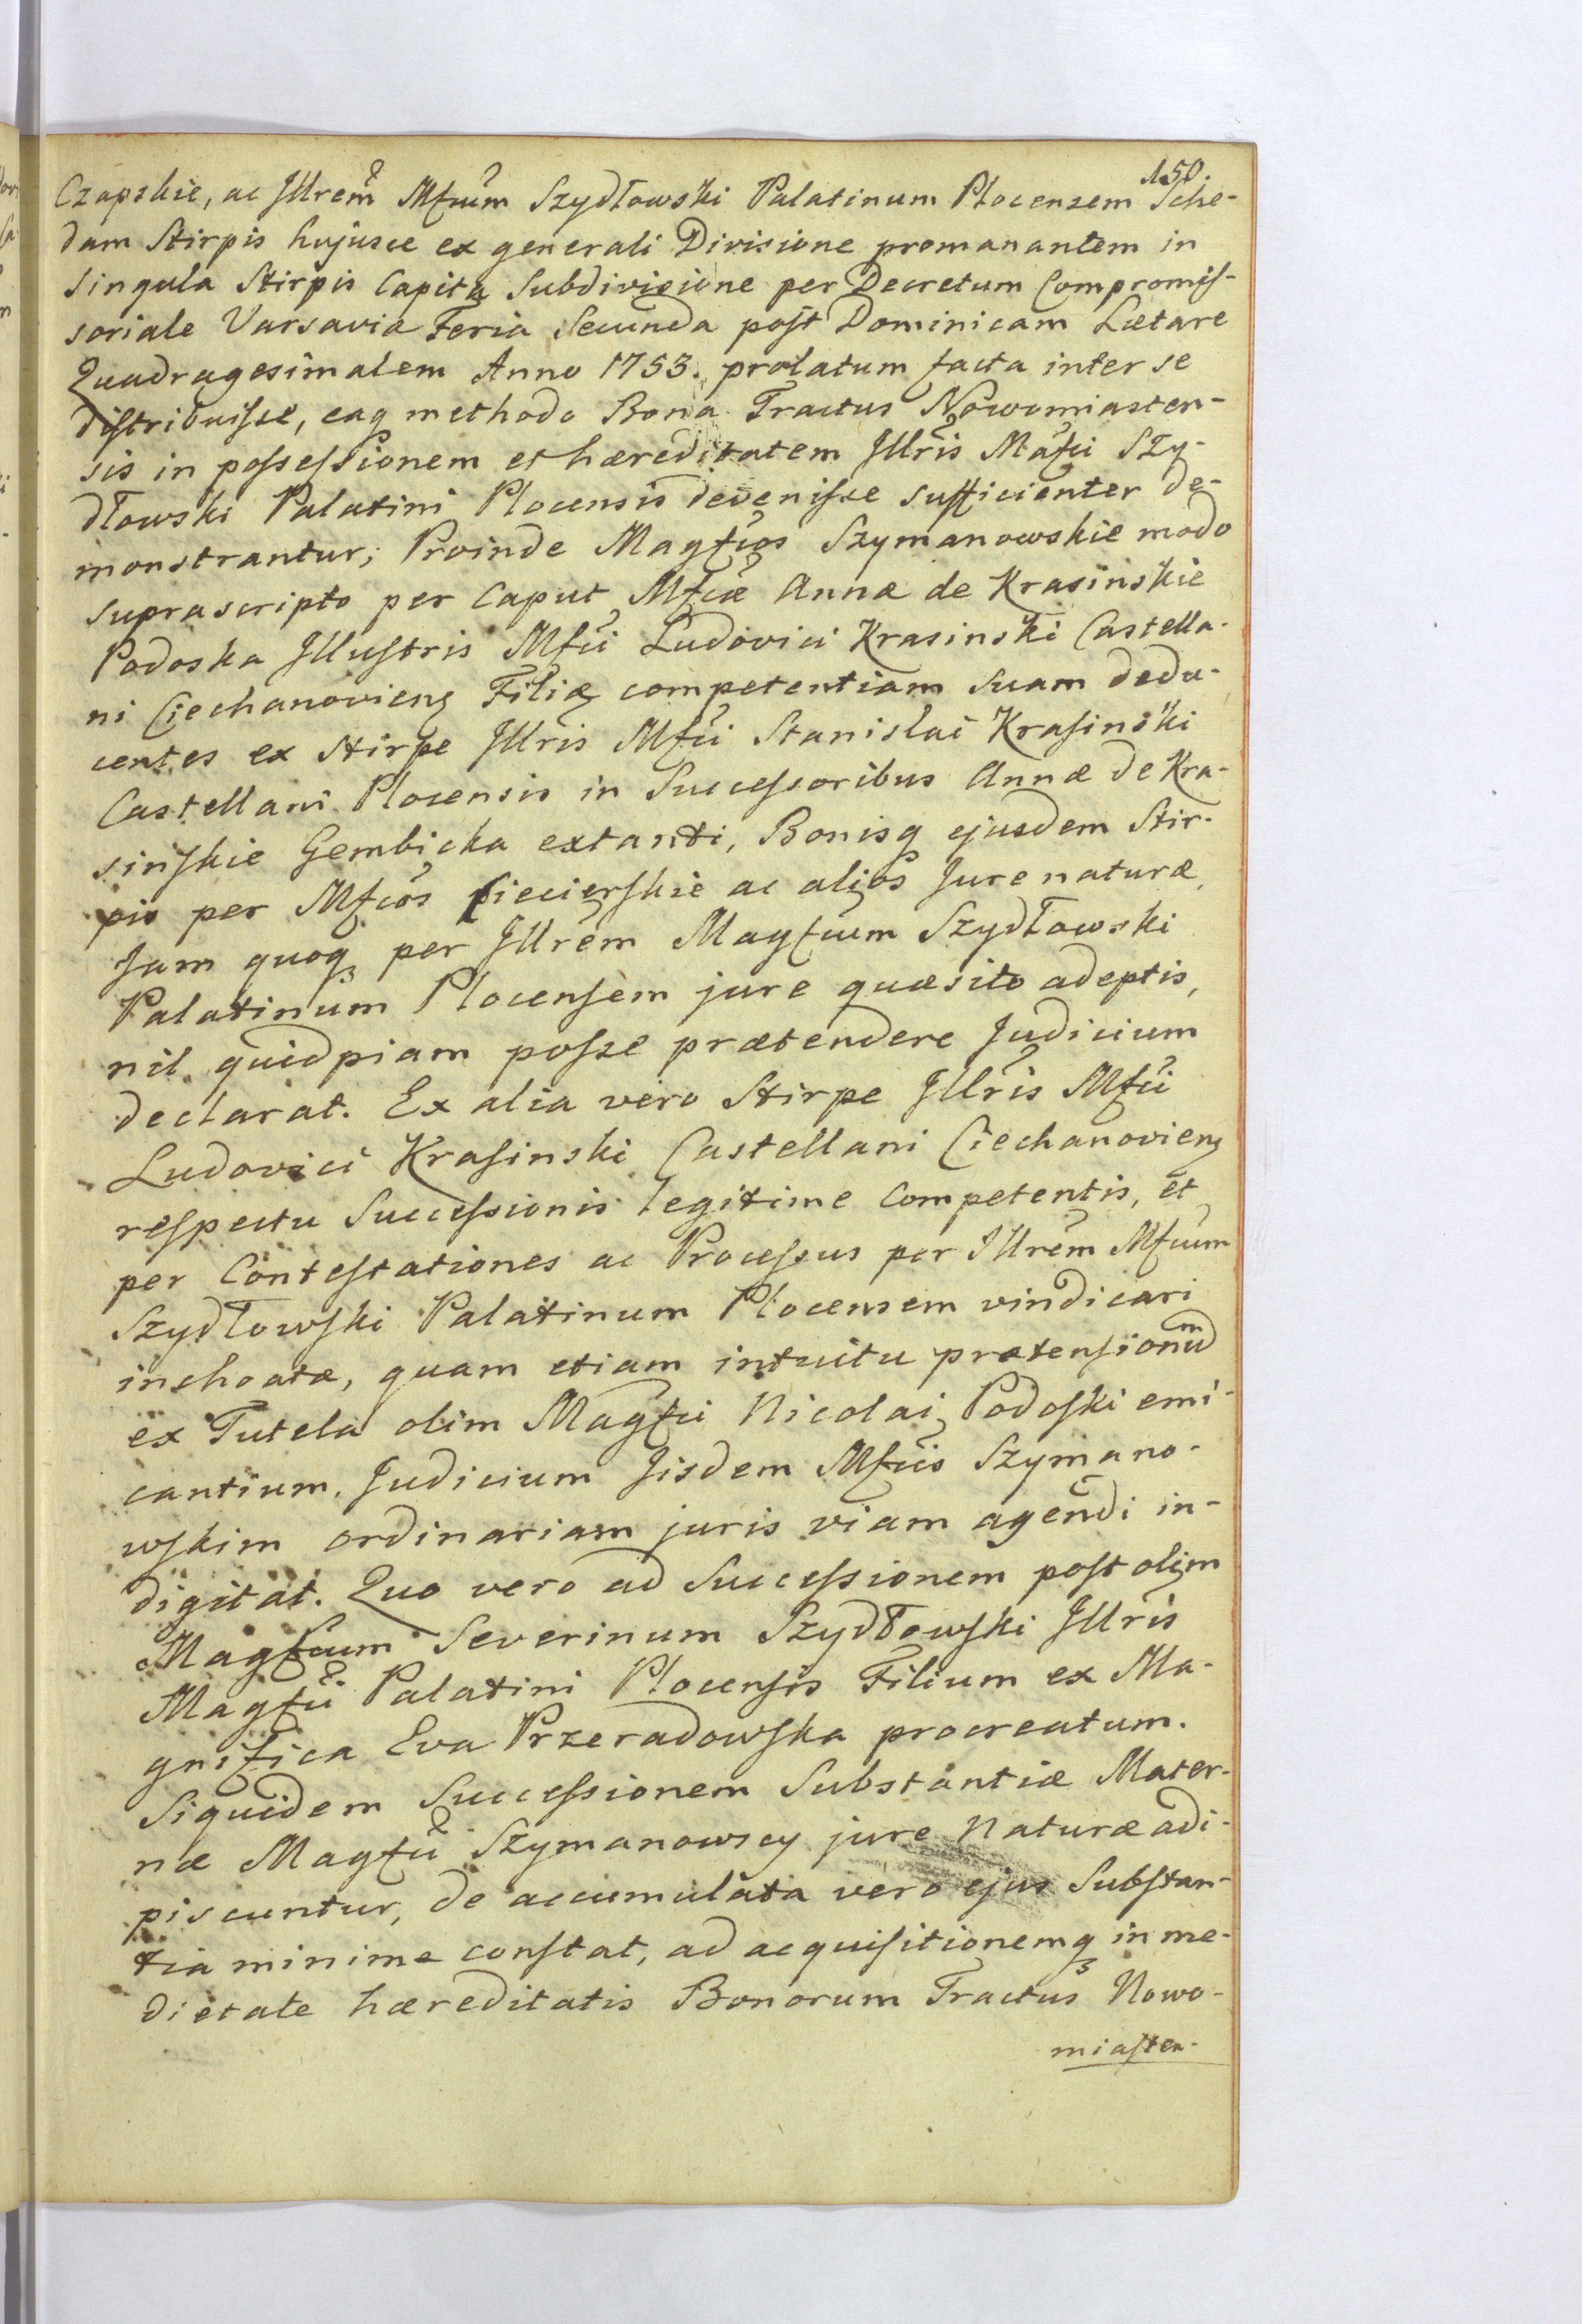 150.
Czapskie, ac Jllrem Mfcum Szydłowski Palatinum Plocensem Sche-
dam Stirpis hujusce ex generali Divisione promanantem in
singula Stirpis Capita Subdivisione per Decretum Compromis-
soriale Varsaviæ Feria Secunda post Dominicam Lætare
Quadragesimalem Anno 1753. prolatum facta inter se
distribuisse, eaq methodo Bona Tractus Nowomiasten-
sis in possessionem et hæreditatem Jllris Mafci Szy-
dłowski Palatini Plocensis devenisse sufficienter de-
monstrantur; Proinde Magfcos Szymanowskie modo
suprascripto per Caput Mfcæ Annæ de Krasinskie
Podoska Jllustris Mfci Ludovici Krasinski Castella-
ni Ciechanovieng Filiæ competentiam suam dedu-
centes ex Stirpe Jllris Mfci Stanislai Krasinski
Castellani Plocensis in Successoribus Annæ de Kra-
sinskie Gembicka extanti, Bonisq ejusdem Stir-
pis per Mfcos Ciecierskie ac alios Jure naturæ,
Jam quoq per Jllrem Magfcum Szydłowski
Palatinum Plocensem jure quæsito adeptis,
nil quidpiam posse prætendere Judicium
declarat. Ex alia vero Stirpe Jllris Mfci
Ludovici Krasinski Castellani Ciechanovieng
respectu Successionis legitime Competentis, et
per Contestationes ac Processus per Jllrem Mfcum
Szydłowski Palatinum Plocensem vindicari
inchoatæ, quam etiam intuitu prætensionum
ex Tutela olim Magfci Nicolai Podoski emi-
cantium, Judicium Jisdem Mfcis Szymano-
wskim ordinariam juris viam agendi in-
digitat. Quo vero ad Successionem post olim
Magfcum Severinum Szydłowski Jllris
Magfci Palatini Plocensis Filium ex Ma-
gnifica Eva Przeradowska procreatum.
Siquidem Successionem Substantiæ Mater-
næ Magfci Szymanowscy jure Naturæ adi-
piscuntur, de accumulata vero ejus Substan-
tia minime constat, ad acquisitionemq in me-
dietate hæreditatis Bonorum Tractus Nowo-
miasten-